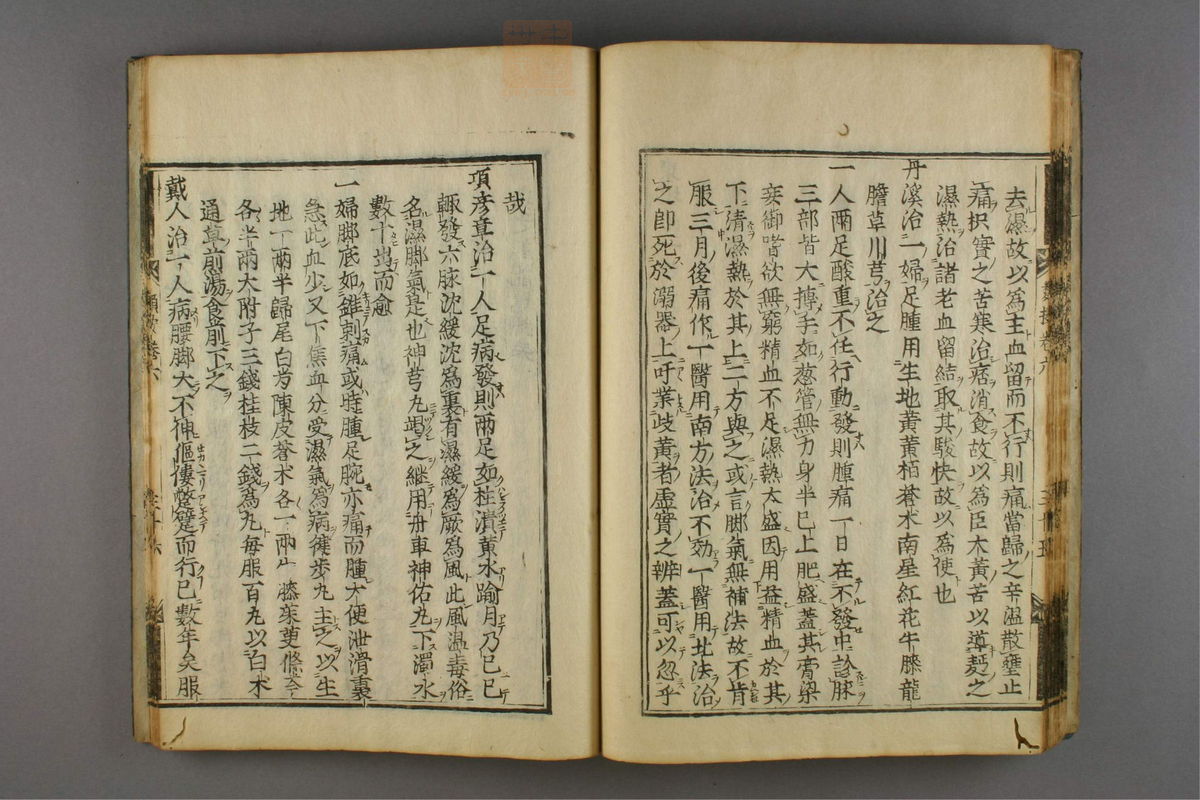 去濕故以為主血留而不行則痛當歸之辛溫散壅止
痛枳實之苦寒治痞消食故以為臣大黃苦以導麪之
濕熱治諸老血留結取其駿快故以為使也
丹溪治一婦足腫用生地黃黃栢蒼朮南星紅花牛膝龍
膽草川芎治之
一人兩足酸重不任行動發則腫痛一日在不發中診脉
三部皆大搏手如葱管無力身半已上肥盛蓋其膏梁
妾御嗜欲無窮精血不足濕熱太盛因用益精血於其
下清濕熱於其上二方與之或言脚氣無補法故不肯
服三月後痛作一醫用南方法治不効一醫用北法治
之即死於溺器上吁業歧黃者虛實之辨蓋可以忽乎
哉
項彥章治一人足病發則兩足如柱潰黃水踰月乃已已
輙發六脉沈緩沈為裏有濕緩為厥為風此風溫毒俗
名濕脚氣是也神芎丸竭之継用舟車神佑丸下濁水
數十出而愈
一婦脚底如錐刺痛或時腫足腕亦痛而腫大便泄滑裏
急此血少又下焦血分受濕氣為病徤步丸主之以生
地一兩半歸尾白芍陳皮蒼朮各一兩牛膝茱萸條芩
各半兩大附子三錢桂枝二錢為丸每服百丸以白朮
通草煎湯食前下之
戴人治一人病腰脚大不伸傴僂蹩躄而行已數年矣服